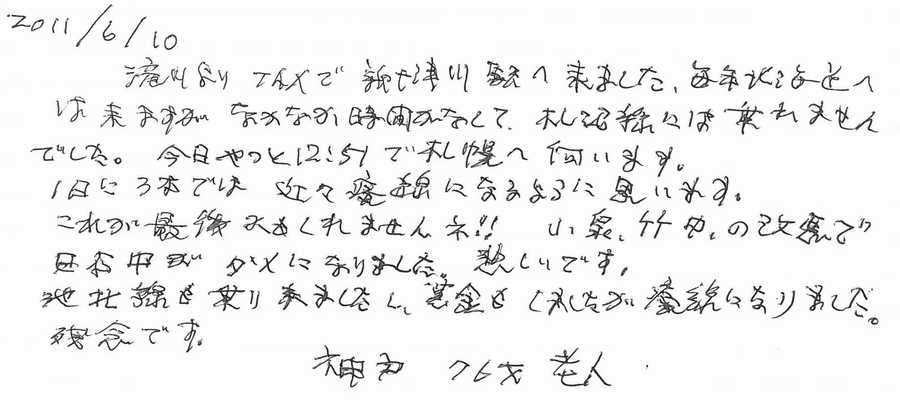 2011/6/10
滝川よりTAXで新十津川駅へ来ました、毎年北海道へ
は来ますが なかなか時間がなくて、札沼線には乗れません
でした。今日やっと12:51で札幌へ伺います。
1日に3本では 近々廃線になるように思いれます。
これが最後かもしれませんネ!! 小泉、竹中、の改悪で
日本中がダメになりました。悲しいです。
池北線も乗り来ましたし、募金もしましたが廃線になりました。
残念です。
神戸 76才 老人